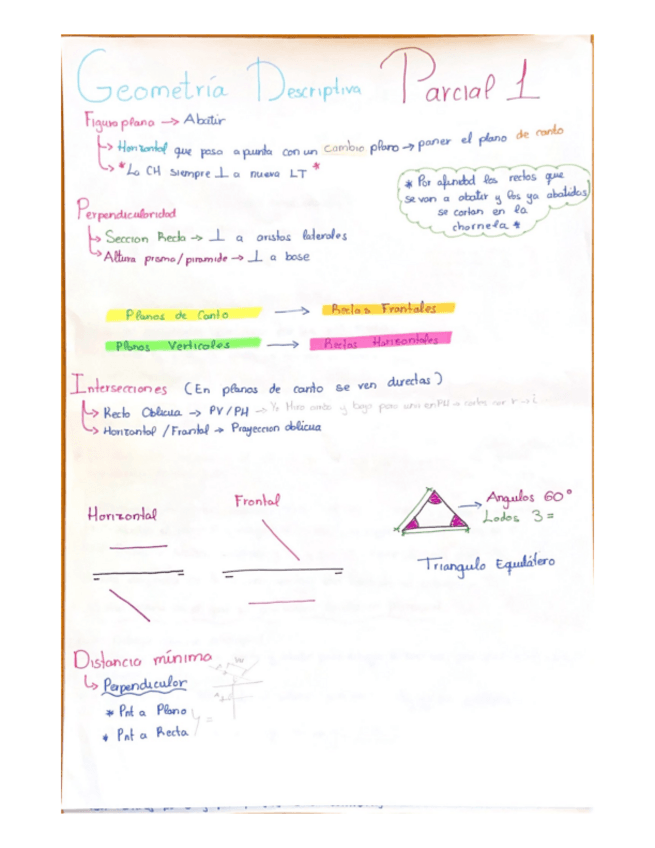 Geometría Descriptiva Parcial 1
Figura plana → Abatir
↳ Horizontal que pasa a punta con un cambio plano → poner el plano de canto
↳ *La CH siempre ⊥ a nueva LT *
* Por afinidad las rectas que
se van a abatir y las ya abatidas
se cortan en la
charnela *
Perpendicularidad
↳ Seccion Recta → ⊥ a aristas laterales
↳ Altura prisma/piramide → ⊥ a base
Planos de Canto → Rectas Frontales
Planos Verticales → Rectas Horizontales
Intersecciones (En planos de canto se ven directas)
↳ Recta Oblicua → PV/PH
↳ Horizontal /Frontal → Proyeccion oblicua
Horizontal
Frontal
→ Angulos 60°
Lados 3 =
Triangulo Equilátero
Distancia mínima
↳ Perpendicular
* Pnt a Plano
* Pnt a Recta